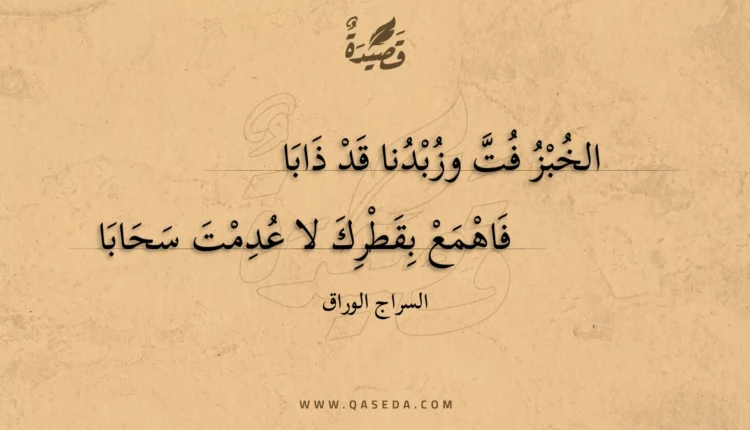 قَصِيْدَةٌ
الخُبْزُ فُتَّ وزُبْدُنا قَدْ ذَابَا
فَاهْمَعْ بِقَطْرِكَ لا عُدِمْتَ سَحَابَا
السراج الوراق
WWW.QASEDA.COM